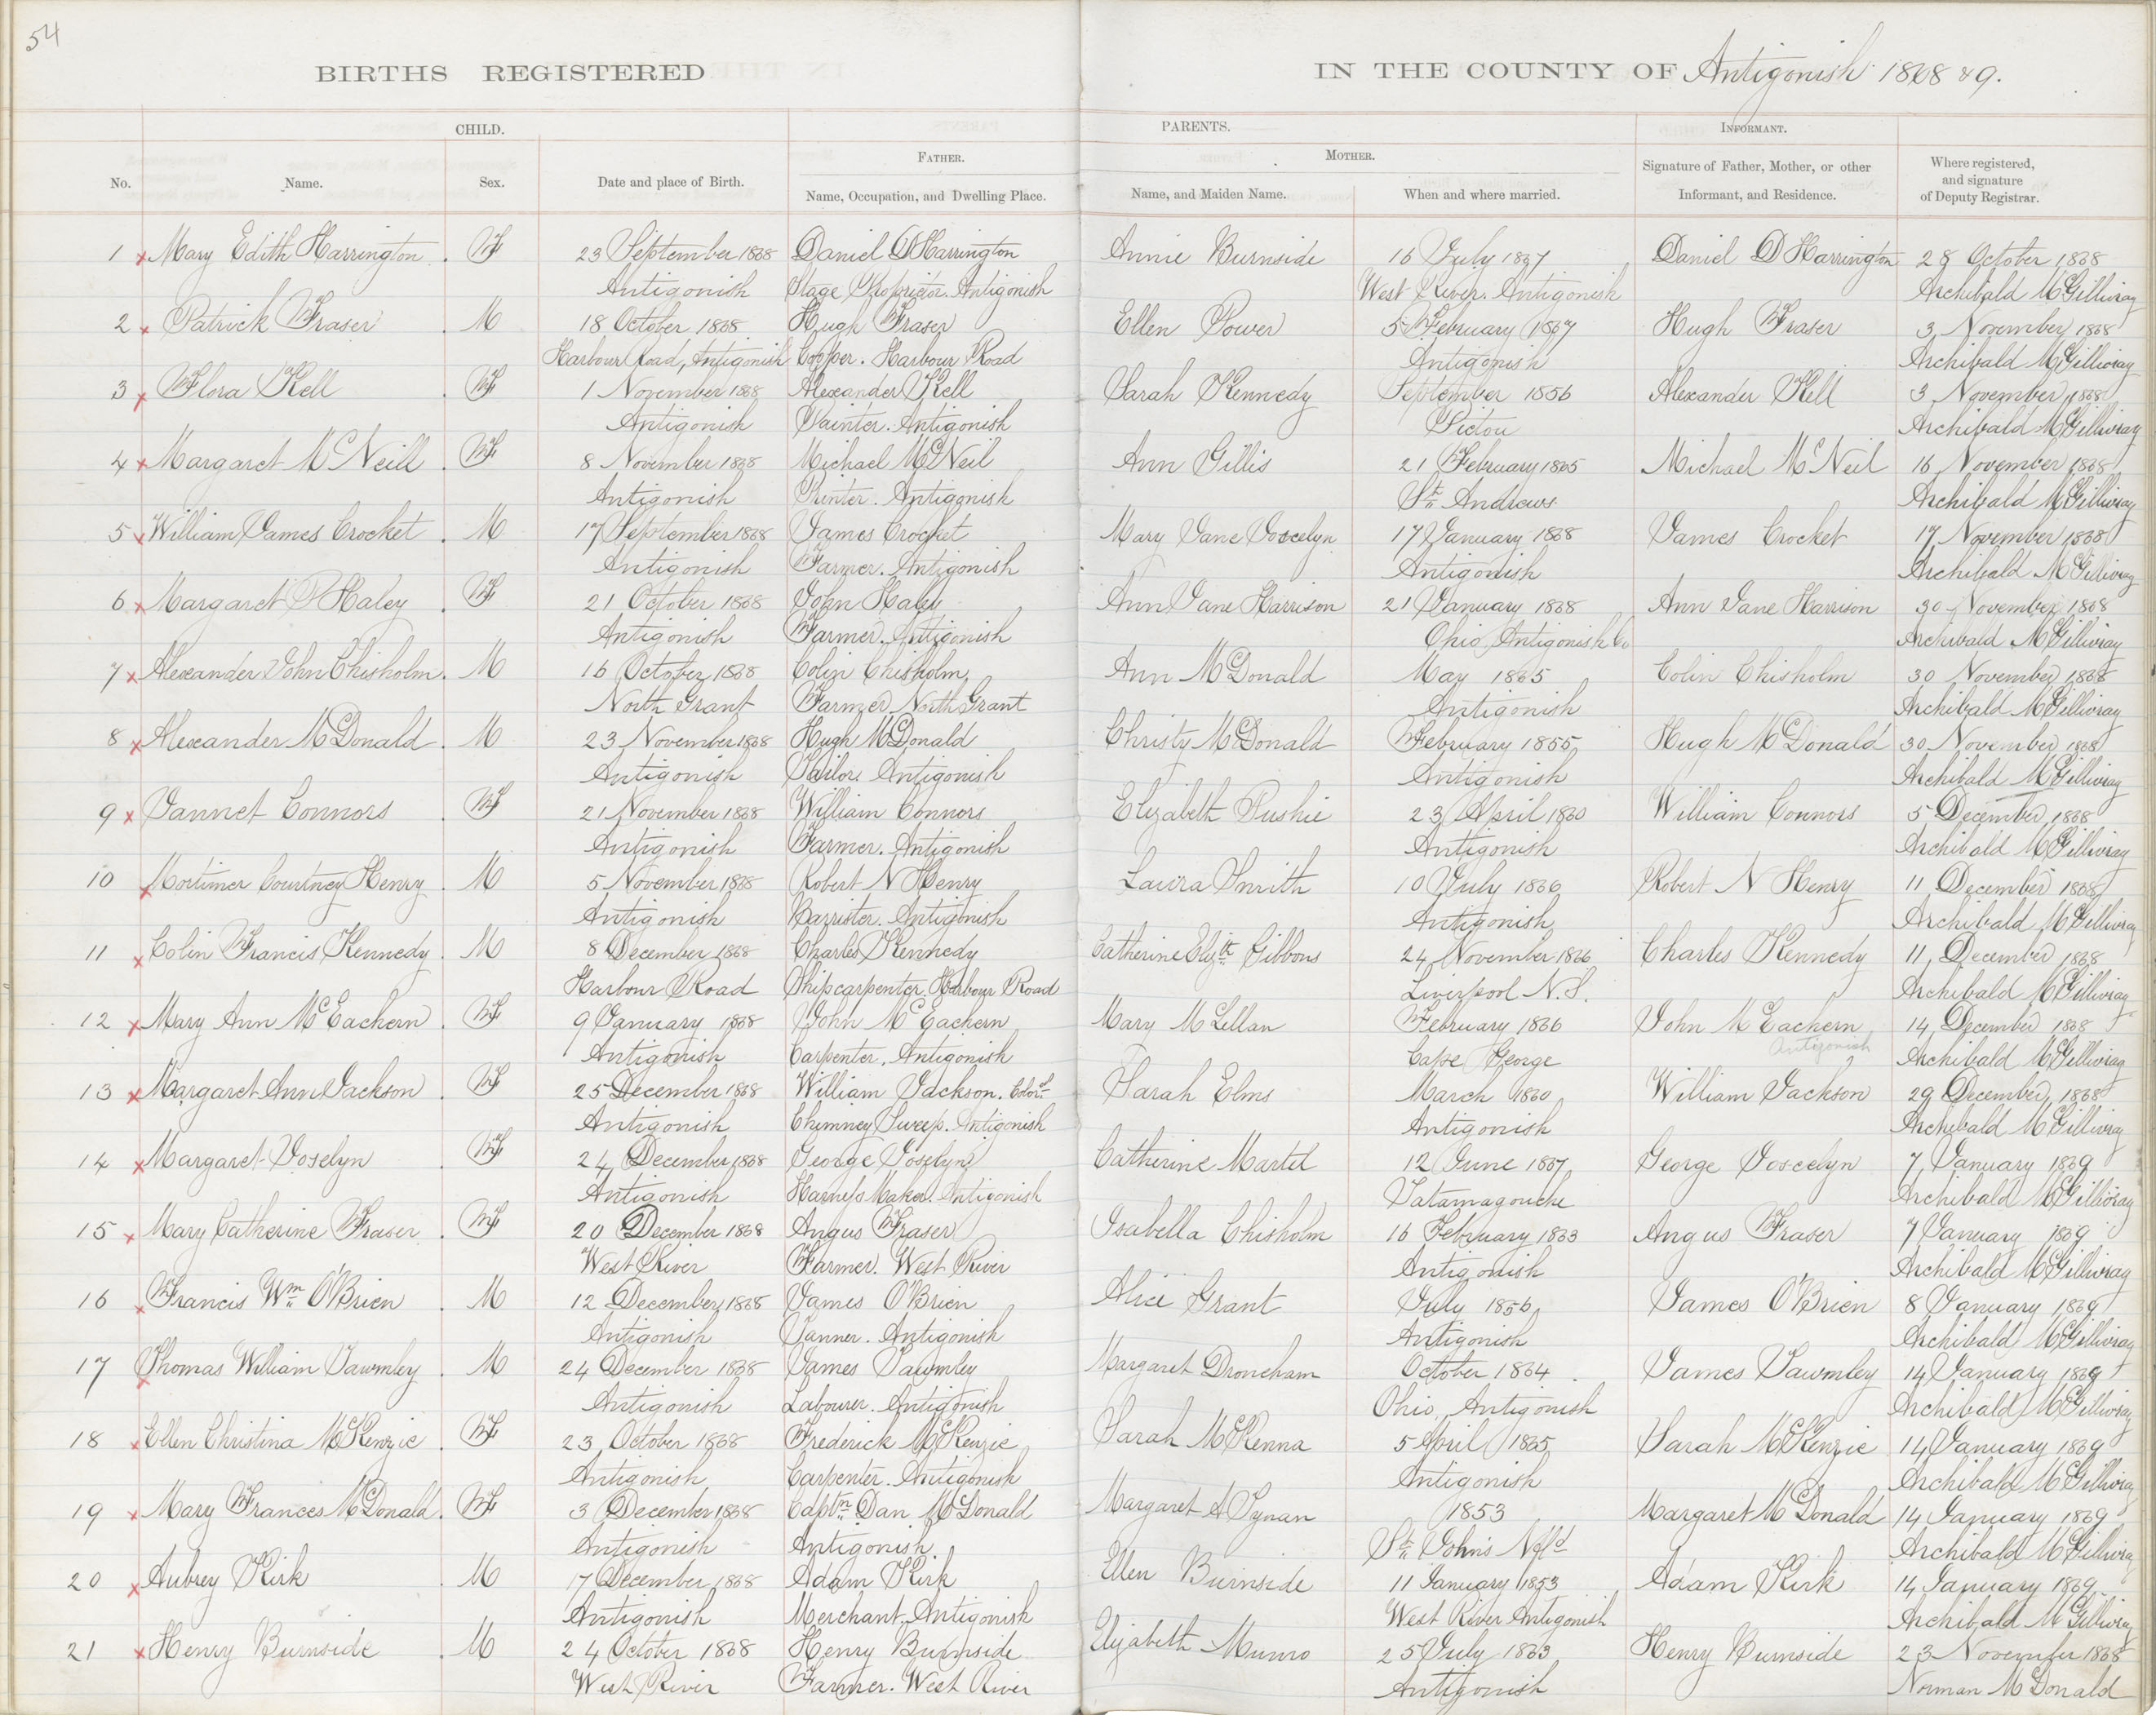 54
BIRTHS REGISTERED IN THE COUNTY OF Antigonish 1868 & 9.
CHILD. PARENTS. INFORMANT.
FATHER. MOTHER.
No. Name. Sex. Date and place of Birth. Name, Occupation, and Dwelling Place. Name, and Maiden Name. When and where married. Signature of Father, Mother, or other Informant, and Residence. Where registered, and signature of Deputy Registrar.
1 x Mary Edith Harrington. F 23 September 1868 Daniel D Harrington Annie Burnside 16 July 1867 Daniel D Harrington 28 October 1868
Antigonish Stage Proprietor. Antigonish West River. Antigonish Archibald McGillivray
2 x Patrick Fraser. M 18 October 1868 Hugh Fraser Ellen Power 5 February 1867 Hugh Fraser 3 November 1868
Harbour Road, Antigonish Cooper. Harbour Road Antigonish Archibald McGillivray
3 x Flora Kell. F 1 November 1868 Alexander Kell Sarah Kennedy September 1856 Alexander Kell 3 November 1868
Antigonish Painter. Antigonish Pictou Archibald McGillivray
4 x Margaret McNeill. F 8 November 1868 Michael McNeil Ann Gillis 21 February 1865 Michael McNeil 16 November 1868
Antigonish Printer. Antigonish St. Andrews Archibald McGillivray
5 x William James Crocket. M 17 September 1868 James Crocket Mary Jane Joscelyn 17 January 1868 James Crocket 17 November 1868
Antigonish Farmer. Antigonish Antigonish Archibald McGillivray
6 x Margaret P Haley. F 21 October 1868 John Haley Ann Jane Harrison 21 January 1868 Ann Jane Harrison 30 November 1868
Antigonish Farmer. Antigonish Ohio, Antigonish Co Archibald McGillivray
7 x Alexander John Chisholm. M 16 October 1868 Colin Chisholm Ann McDonald May 1865 Colin Chisholm 30 November 1868
North Grant Farmer North Grant Antigonish Archibald McGillivray
8 x Alexander McDonald. M 23 November 1868 Hugh McDonald Christy McDonald February 1855 Hugh McDonald 30 November 1868
Antigonish Tailor. Antigonish Antigonish Archibald McGillivray
9 x Jannet Connors. F 21 November 1868 William Connors Elizabeth Pushie 23 April 1860 William Connors 5 December 1868
Antigonish Farmer. Antigonish Antigonish Archibald McGillivray
10 x Mortimer Courtney Henry. M 5 November 1868 Robert N Henry Laura Smith 10 July 1866 Robert N Henry 11 December 1868
Antigonish Barrister. Antigonish Antigonish Archibald McGillivray
11 x Colin Francis Kennedy. M 8 December 1868 Charles Kennedy Catherine Elizth Gibbons 24 November 1866 Charles Kennedy 11 December 1868
Harbour Road Shipcarpenter. Harbour Road Liverpool N.S. Archibald McGillivray
12 x Mary Ann McEachern. F 9 January 1868 John McEachern Mary McLellan February 1866 John McEachern 14 December 1868
Antigonish Carpenter. Antigonish Cape George Antigonish Archibald McGillivray
13 x Margaret Ann Jackson. F 25 December 1868 William Jackson. Colord Sarah Elms March 1860 William Jackson 29 December 1868
Antigonish Chimney Sweep. Antigonish Antigonish Archibald McGillivray
14 x Margaret Joselyn. F 24 December 1868 George Joselyn Catherine Martel 12 June 1867 George Joscelyn 7 January 1869
Antigonish Harness Maker. Antigonish Tatamagouche Archibald McGillivray
15 x Mary Catherine Fraser. F 20 December 1868 Angus Fraser Isabella Chisholm 16 February 1863 Angus Fraser 7 January 1869
West River Farmer. West River Antigonish Archibald McGillivray
16 x Francis Wm O'Brien. M 12 December 1868 James O'Brien Alice Grant July 1856 James O'Brien 8 January 1869
Antigonish Tanner. Antigonish Antigonish Archibald McGillivray
17 x Thomas William Tawmley. M 24 December 1868 James Tawmley Margaret Droncham October 1864 James Tawmley 14 January 1869
Antigonish Labourer. Antigonish Ohio, Antigonish Archibald McGillivray
18 x Ellen Christina McKenzie. F 23 October 1868 Frederick McKenzie Sarah McKenna 5 April 1865 Sarah McKenzie 14 January 1869
Antigonish Carpenter. Antigonish Antigonish Archibald McGillivray
19 x Mary Frances McDonald. F 3 December 1868 Captn Dan McDonald Margaret A Synan 1853 Margaret McDonald 14 January 1869
Antigonish Antigonish St. John's Nfld Archibald McGillivray
20 x Aubrey Kirk. M 17 December 1868 Adam Kirk Ellen Burnside 11 January 1853 Adam Kirk 14 January 1869
Antigonish Merchant. Antigonish West River Antigonish Archibald McGillivray
21 x Henry Burnside. M 24 October 1868 Henry Burnside Elizabeth Munro 25 July 1863 Henry Burnside 23 November 1868
West River Farmer. West River Antigonish Norman McDonald